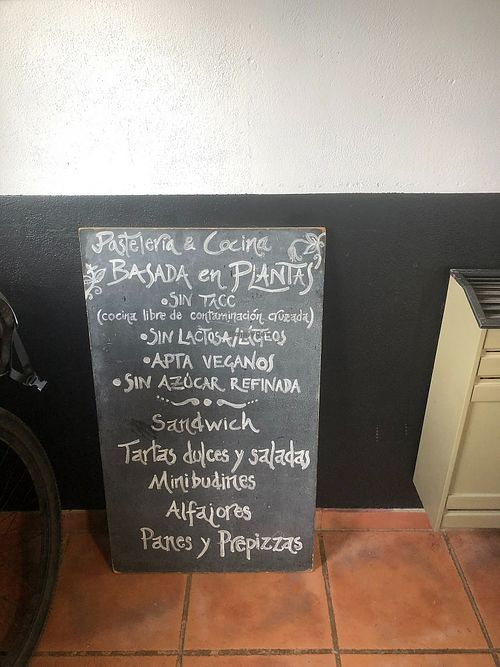 Pastelería & Cocina
BASADA en PLANTAS
• SIN TACC
(cocina libre de contaminación cruzada)
• SIN LACTOSA/LÁCTEOS
• APTA VEGANOS
• SIN AZÚCAR REFINADA
Sandwich
Tartas dulces y saladas
Minibudines
Alfajores
Panes y Prepizzas